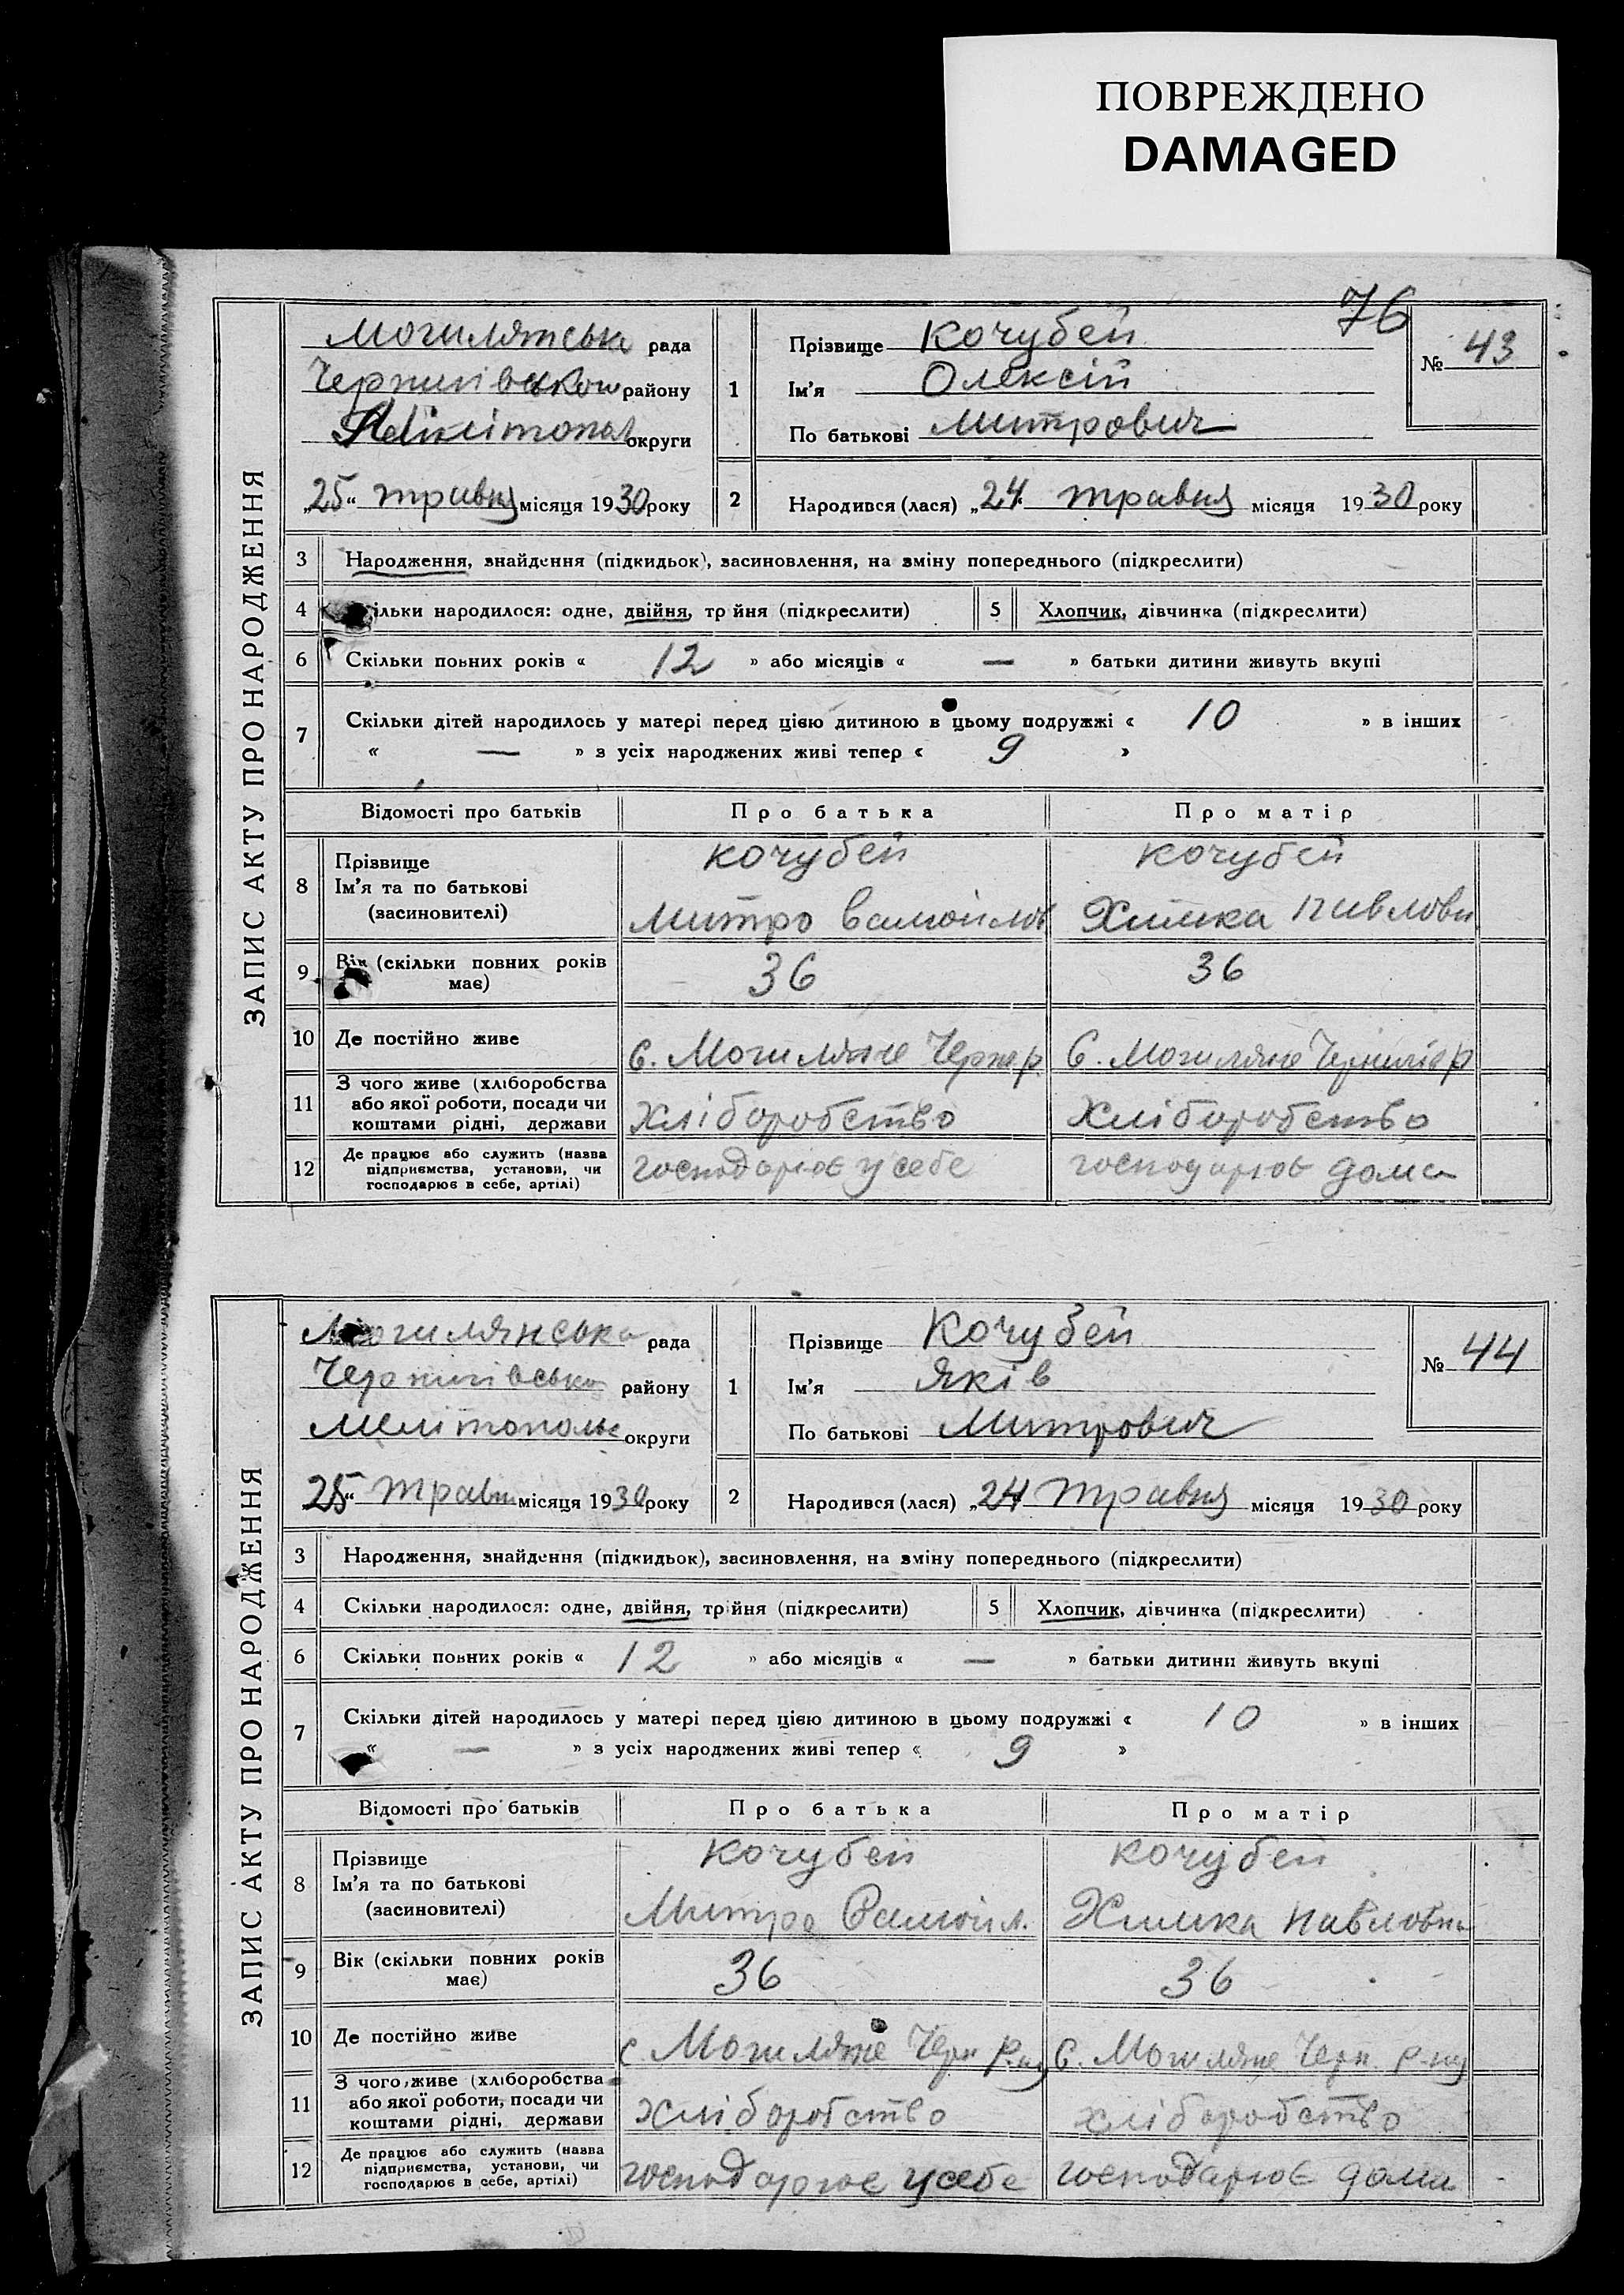 ПОВРЕЖДЕНО
DAMAGED
76
ЗАПИС АКТУ ПРО НАРОДЖЕННЯ
Могилянська рада
Чернигівсько району
округи
„25“ травня місяця 1930 року
1
Прізвище Кочубей
Ім’я Олексій
По батькові Митрович
№ 43
2 Народився (лася) „24“ травня місяця 1930 року
3 Народження, знайдення (підкидьок), засиновлення, на зміну попереднього (підкреслити)
4 кільки народилося: одне, двійня, трійня (підкреслити) 5 Хлопчик, дівчинка (підкреслити)
6 Скільки повних років « 12 » або місяців « — » батьки дитини живуть вкупі
7 Скільки дітей народилось у матері перед цією дитиною в цьому подружжі « 10 » в інших
« — » з усіх народжених живі тепер « 9 »
Відомості про батьків Про батька Про матір
8 Прізвище
Ім’я та по батькові
(засиновителі)
Кочубей
Митро Самойлов
Кочубей
Химка Павловн
9 Вік (скільки повних років
має)
36 36
10 Де постійно живе С. Могиляне Черн р. С. Могиляне Черниг р
11 З чого живе (хліборобства
або якої роботи, посади чи
коштами рідні, держави
Хліборобство Хліборобство
12 Де працює або служить (назва
підприємства, установи, чи
господарює в себе, артілі)
господарює у себе господарює дома
ЗАПИС АКТУ ПРО НАРОДЖЕННЯ
Могилянська рада
Чернигівсько району
Мелітопольс округи
„25“ Травн місяця 1930 року
1
Прізвище Кочубей
Ім’я Яків
По батькові Митрович
№ 44
2 Народився (лася) „24“ травня місяця 1930 року
3 Народження, знайдення (підкидьок), засиновлення, на зміну попереднього (підкреслити)
4 Скільки народилося: одне, двійня, трійня (підкреслити) 5 Хлопчик, дівчинка (підкреслити)
6 Скільки повних років « 12 » або місяців « — » батьки дитини живуть вкупі
7 Скільки дітей народилось у матері перед цією дитиною в цьому подружжі « 10 » в інших
« — » з усіх народжених живі тепер « 9 »
Відомості про батьків Про батька Про матір
8 Прізвище
Ім’я та по батькові
(засиновителі)
Кочубей
Митро Самойл.
Кочубей
Химка Павловн
9 Вік (скільки повних років
має)
36 36
10 Де постійно живе с. Могиляне Черн р-ну С. Могиляне Черн. р-ну
11 З чого живе (хліборобства
або якої роботи, посади чи
коштами рідні, держави
хліборобство хліборобство
12 Де працює або служить (назва
підприємства, установи, чи
господарює в себе, артілі)
господарює у себе господарює дома